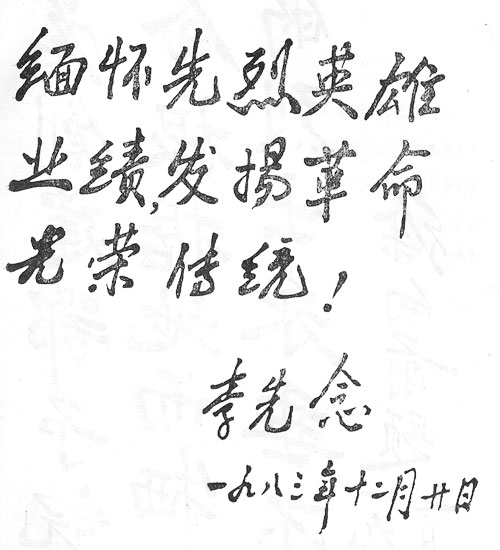 缅怀先烈英雄
业绩,发揚革命
光荣传统!
李先念
一九八三年十二月廿日